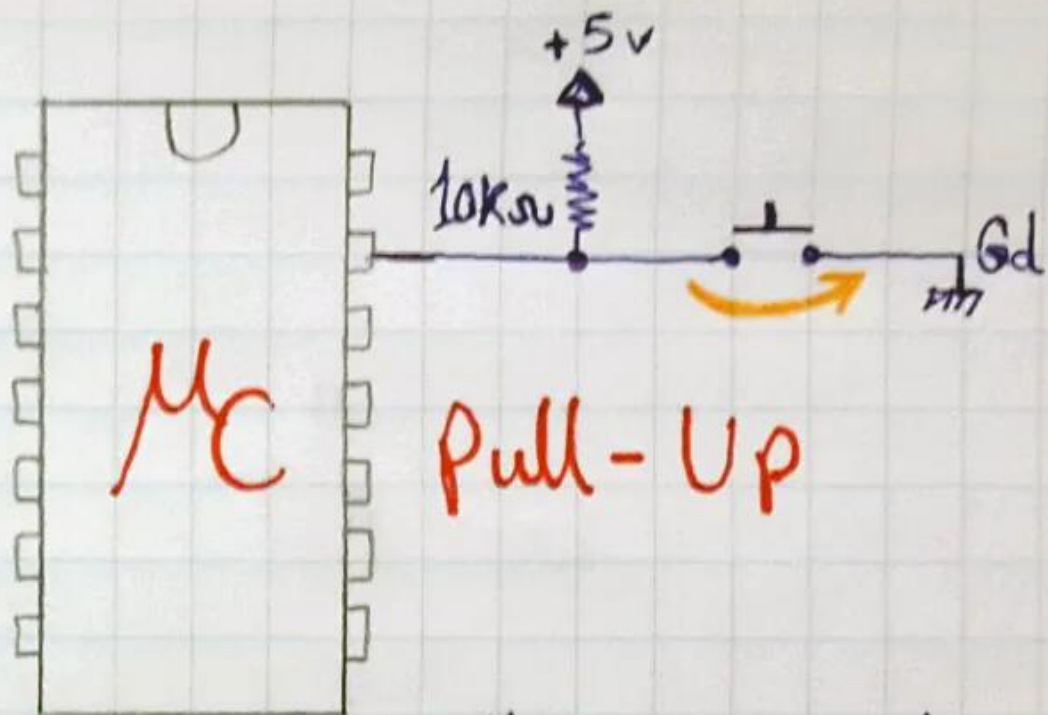 +5v
10KΩ
Gd
μC
Pull-Up